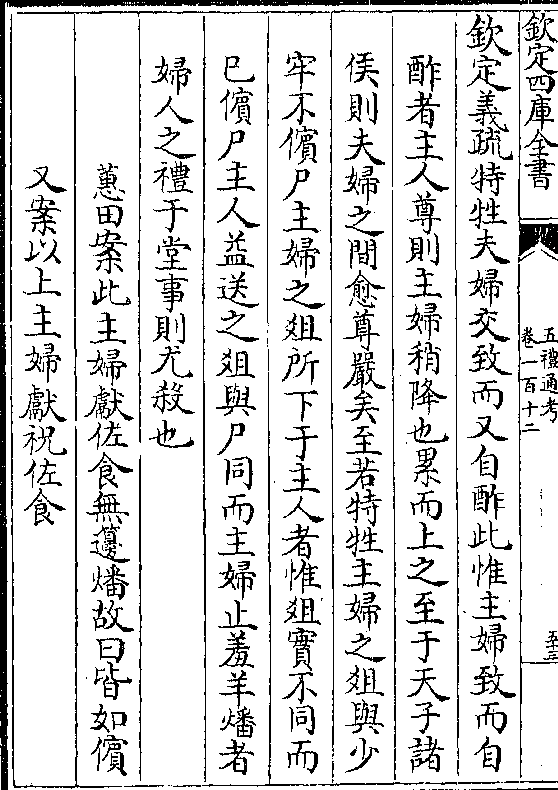 欽定四庫全書
五禮通考
卷一百十二
五十三
欽定義疏特牲夫婦交致而又自酢此惟主婦致而自
酢者主人尊則主婦稍降也累而上之至于天子諸
侯則夫婦之間愈尊嚴矣至若特牲主婦之俎與少
牢不儐尸主婦之俎所下于主人者惟俎實不同而
已儐尸主人益送之俎與尸同而主婦止羞羊燔者
婦人之禮于堂事則尤殺也
蕙田案此主婦獻佐食無籩燔故曰皆如儐
又案以上主婦獻祝佐食